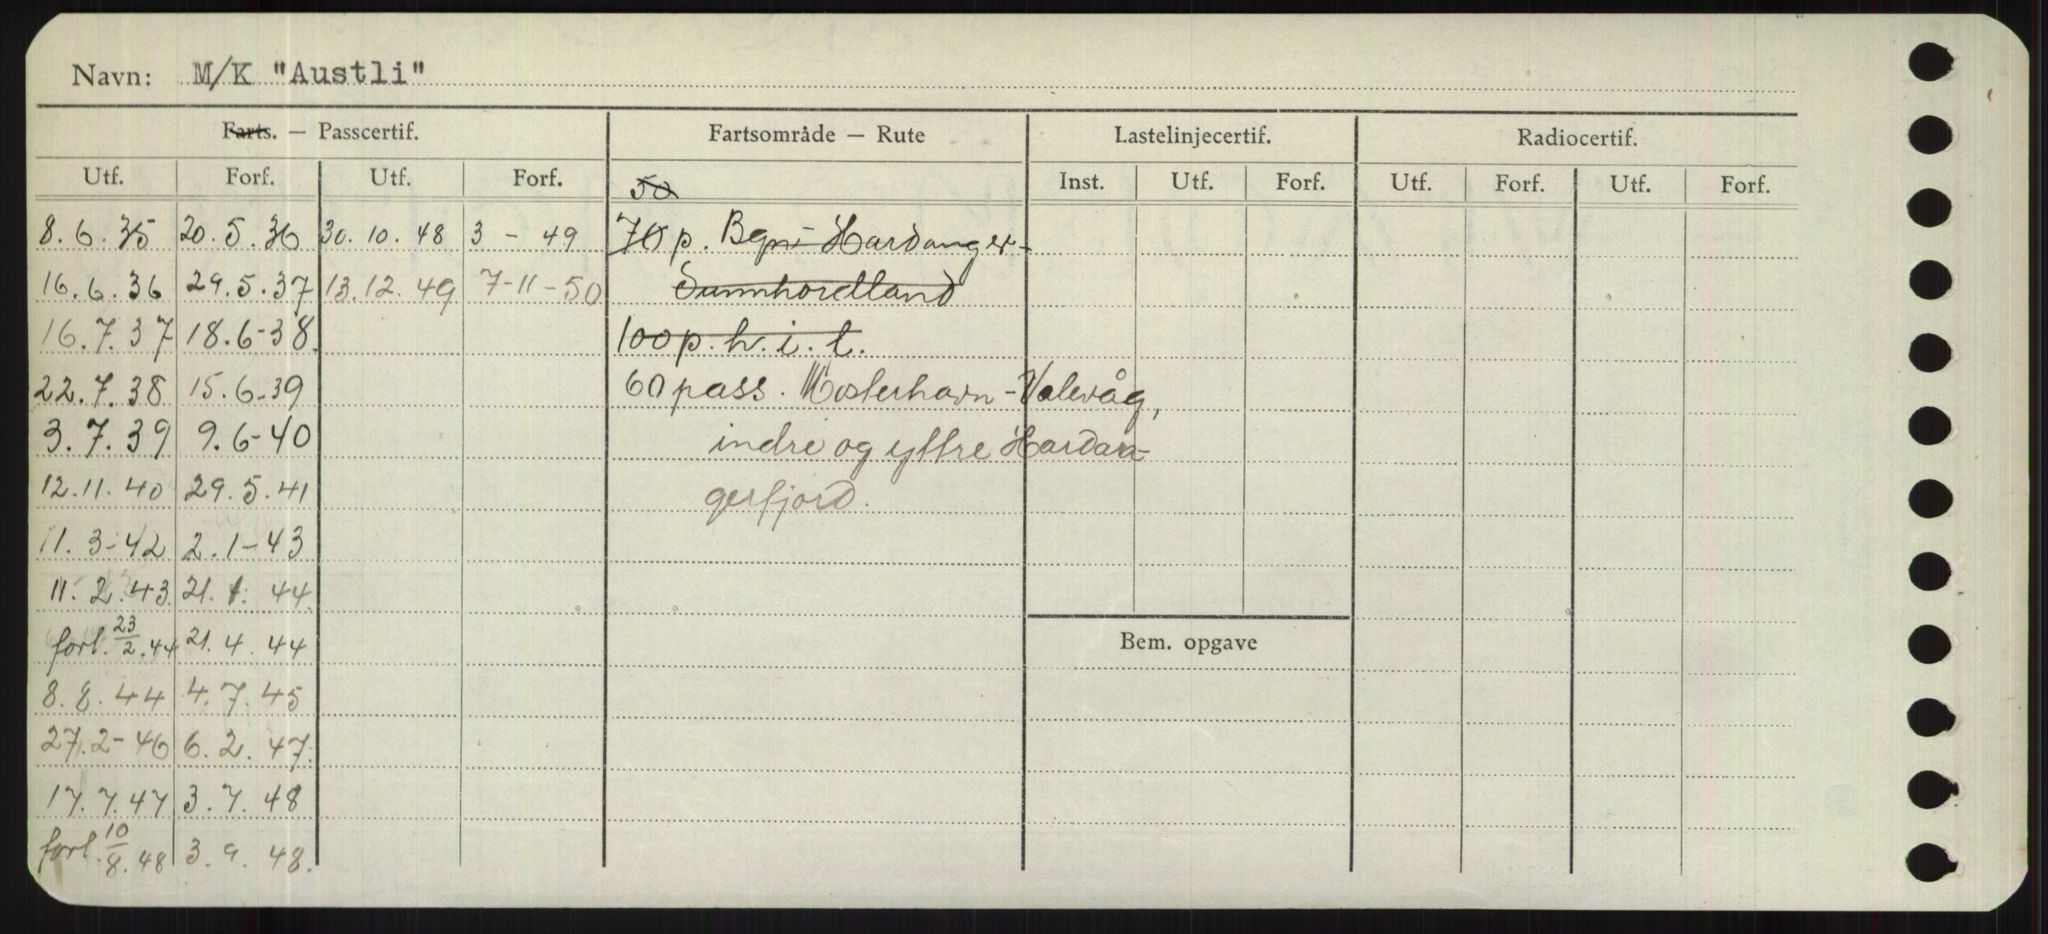 Navn: M/K "Austli"
Farts. — Passcertif. Fartsområde — Rute Lastelinjecertif. Radiocertif.
Utf. Forf. Utf. Forf. 50 Inst. Utf. Forf. Utf. Forf. Utf. Forf.
8.6.35 20.5.36 30.10.48 3 - 49 70 p. Bgn- Hardanger-
16.6.36 29.5.37 13.12.49 7-11-50 Sunnhordland
16.7.37 18.6-38. 100 p. h.i.t.
22.7.38 15.6-39 60 pass. Mosterhavn-Valevåg,
3.7.39 9.6-40 indre og yttre Hardan-
12.11.40 29.5.41 gerfjord.
11.3-42 2.1-43
11.2.43. 21.1.44.
forl. 23/2.44 21.4.44
8.8.44 4.7.45 Bem. opgave
27.2-46 6.2.47.
17.7.47 3.7.48
forl. 10/8.48 3.9.48.